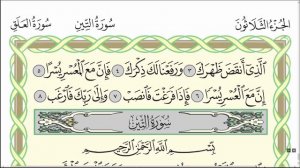 الجُزْءُ الثَّلَاثُونَ سُورَةُ التِّينِ سُورَةُ العَلَقِ
ٱلَّذِىٓ أَنقَضَ ظَهْرَكَ ٣ وَرَفَعْنَا لَكَ ذِكْرَكَ ٤ فَإِنَّ مَعَ ٱلْعُسْرِ يُسْرًا ٥
إِنَّ مَعَ ٱلْعُسْرِ يُسْرًا ٦ فَإِذَا فَرَغْتَ فَٱنصَبْ ٧ وَإِلَىٰ رَبِّكَ فَٱرْغَب ٨
سُورَةُ التِّينِ
بِسْمِ ٱللَّهِ ٱلرَّحْمَٰنِ ٱلرَّحِيمِ